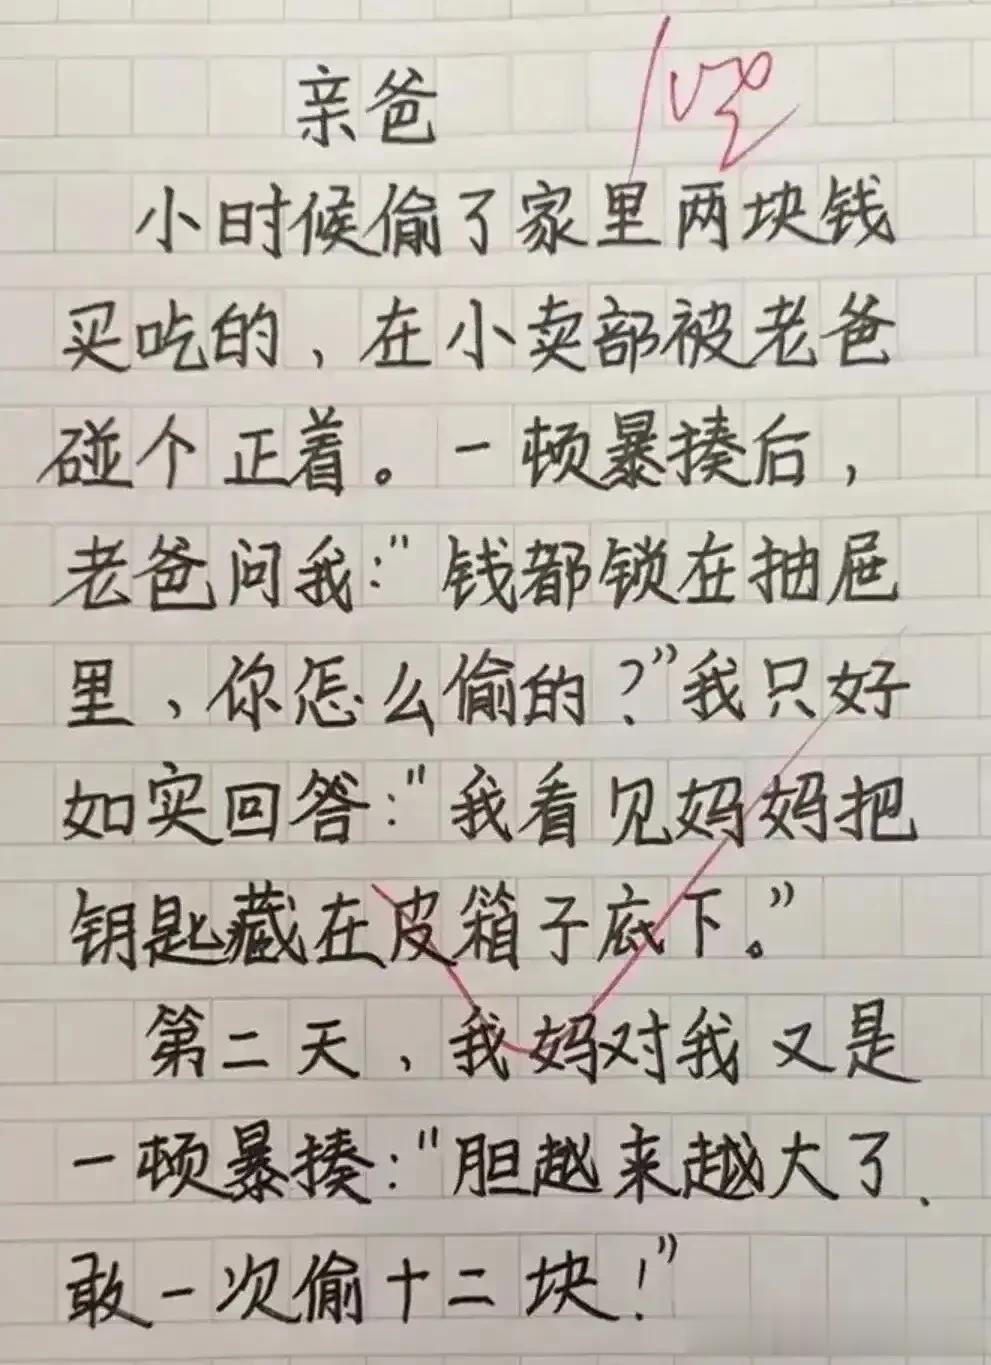 亲爸
小时候偷了家里两块钱
买吃的，在小卖部被老爸
碰个正着。一顿暴揍后，
老爸问我："钱都锁在抽屉
里，你怎么偷的？”我只好
如实回答："我看见妈妈把
钥匙藏在皮箱子底下。”
第二天，我妈对我又是
一顿暴揍："胆越来越大了、
敢一次偷十二块！”